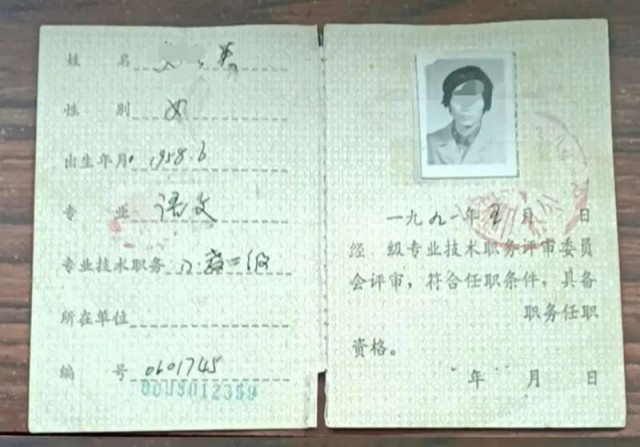 姓 名 英
性 别 女
出生年月 1958.6
专 业 语文
专业技术职务 小教二级
所在单位
编 号 0601745
00U3012359
一九九一年 月 日
经 级专业技术职务评审委员
会评审，符合任职条件，具备
职务任职
资格。
年 月 日